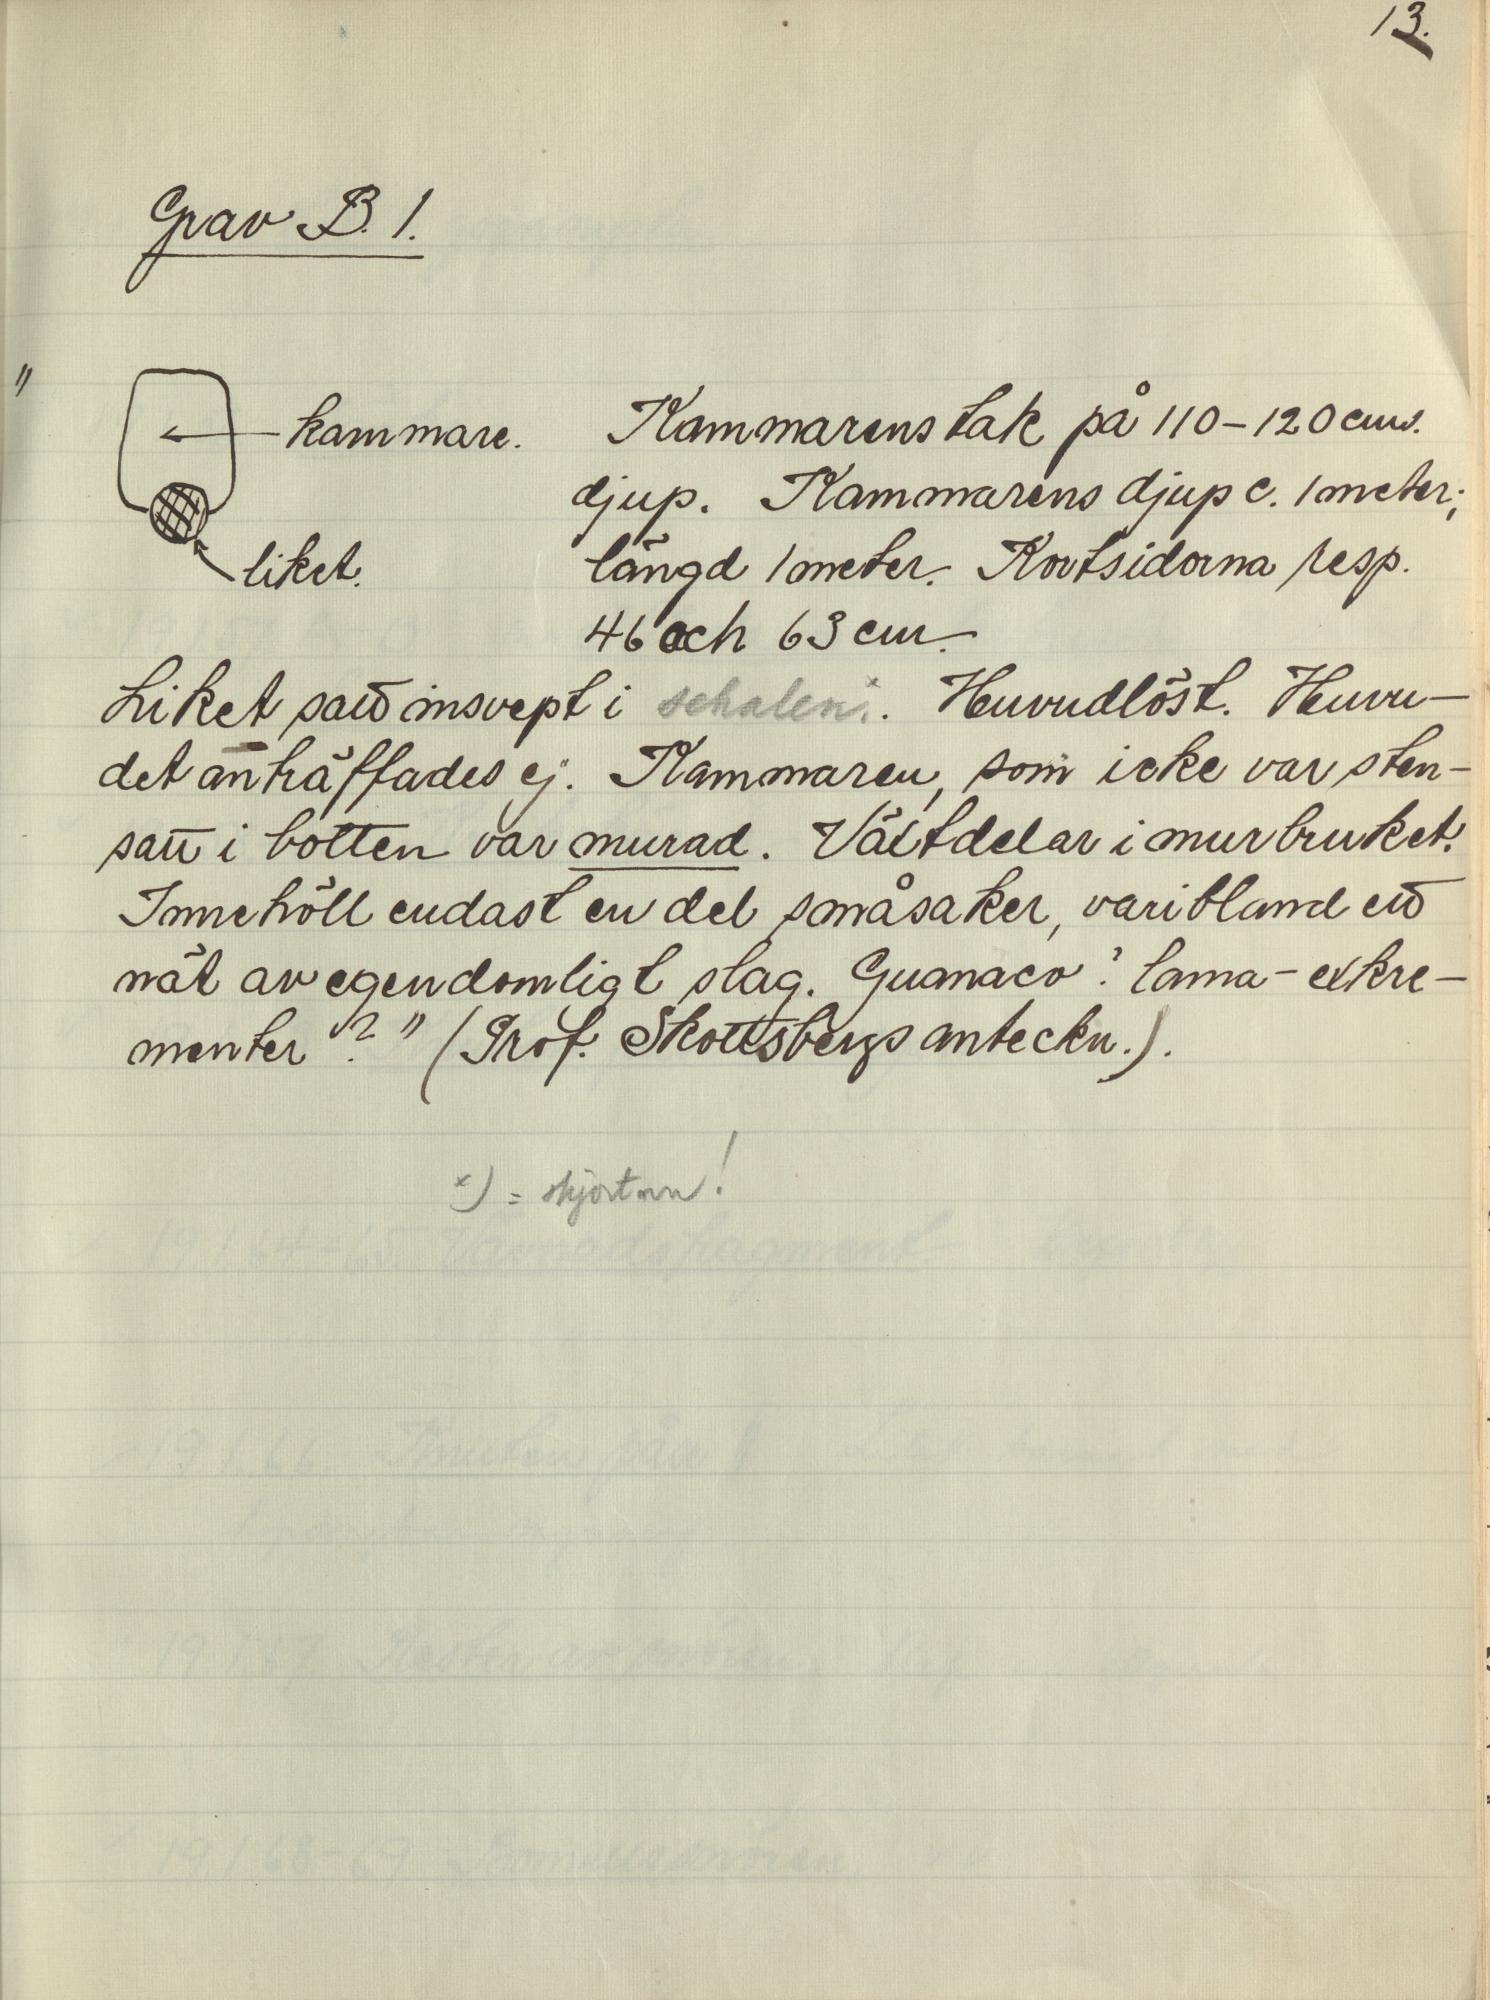 13.
Grav B. 1.
"
kammare.
liket.
Kammarens tak på 110–120 cm.
djup. Kammarens djup c. 1 meter;
längd 1 meter. Kortsidorna resp.
46 och 63 cm.
Liket satt insvept i schalen. Huvudlöst. Huvu-
det anträffades ej. Kammaren, som icke var sten-
satt i botten var murad. Växtdelar i murbruket.
Innehöll endast en del småsaker, varibland ett
nät av egendomligt slag. Guanaco? lama-exkre-
menter?" (Prof. Skottsbergs anteckn.).
x) = skjortan!